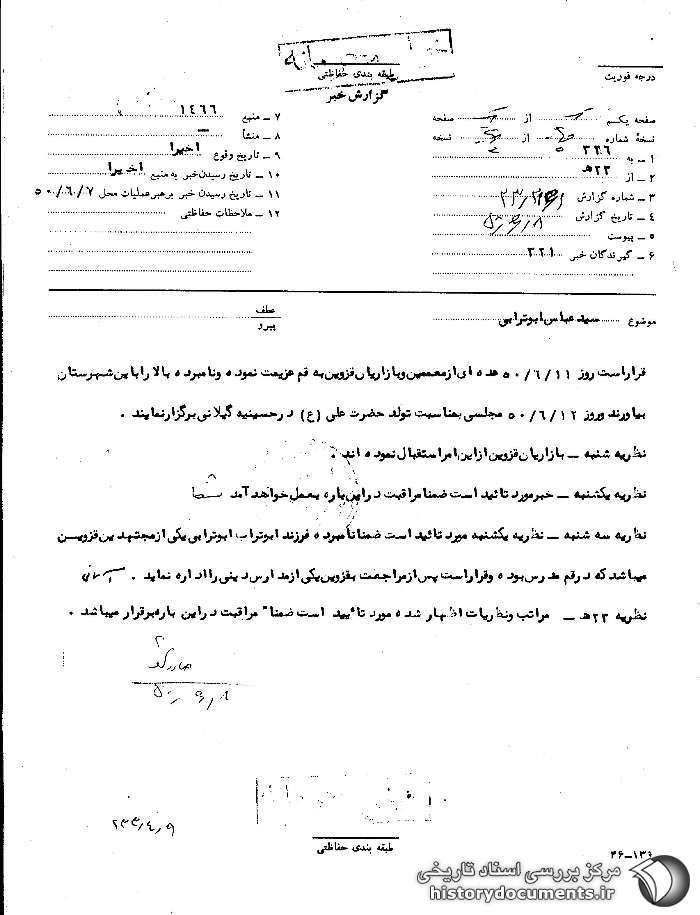 طبقه بندی حفاظتی
گزارش خبر
درجه فوریت
صفحه یکم از صفحه
نسخهٔ شماره از نسخه
۱ ـ به ۳۲۶
۲ ـ از ۲۳ﻫ
۳ ـ شماره گزارش
۴ ـ تاریخ گزارش ۵۰٫۶٫۸
۵ ـ پیوست
۶ ـ گیرندگان خبر ۳۲۱
۷ ـ منبع ۱۴۶۶
۸ ـ منشأ
۹ ـ تاریخ وقوع اخیرا
۱۰ ـ تاریخ رسیدن خبر به منبع اخیرا
۱۱ ـ تاریخ رسیدن خبر برهبر عملیات محل ۵۰/۶/۷
۱۲ ـ ملاحظات حفاظتی
موضوع سید عباس ابوترابی
عطف
پیرو
قرار است روز ۵۰/۶/۱۱ عده ای از معممین و بازاریان قزوین به قم عزیمت نموده و نامبرده بالا را باین شهرستان
بیاورند و روز ۵۰/۶/۱۲ مجلسی بمناسبت تولد حضرت علی (ع) در حسینیه گیلانی برگزار نمایند .
نظریه شنبه ـ بازاریان قزوین از این امر استقبال نموده اند .
نظریه یکشنبه ـ خبر مورد تائید است ضمنا مراقبت در این باره بعمل خواهد آمد
نظریه سه شنبه ـ نظریه یکشنبه مورد تائید است ضمنا نامبرده فرزند ابوتراب ابوترابی یکی از مجتهدین قزوین
میباشد که در قم مدرس بوده و قرار است پس از مراجعت بقزوین یکی از مدارس دینی را اداره نماید .
نظریه ۲۳ﻫ ـ مراتب و نظریات اظهار شده مورد تائیید است ضمنا" مراقبت در این باره برقرار میباشد .
۵۰٫۶٫۸
۲۳۳٫۴٫۹
طبقه بندی حفاظتی
مرکز بررسی اسناد تاریخی
historydocuments.ir